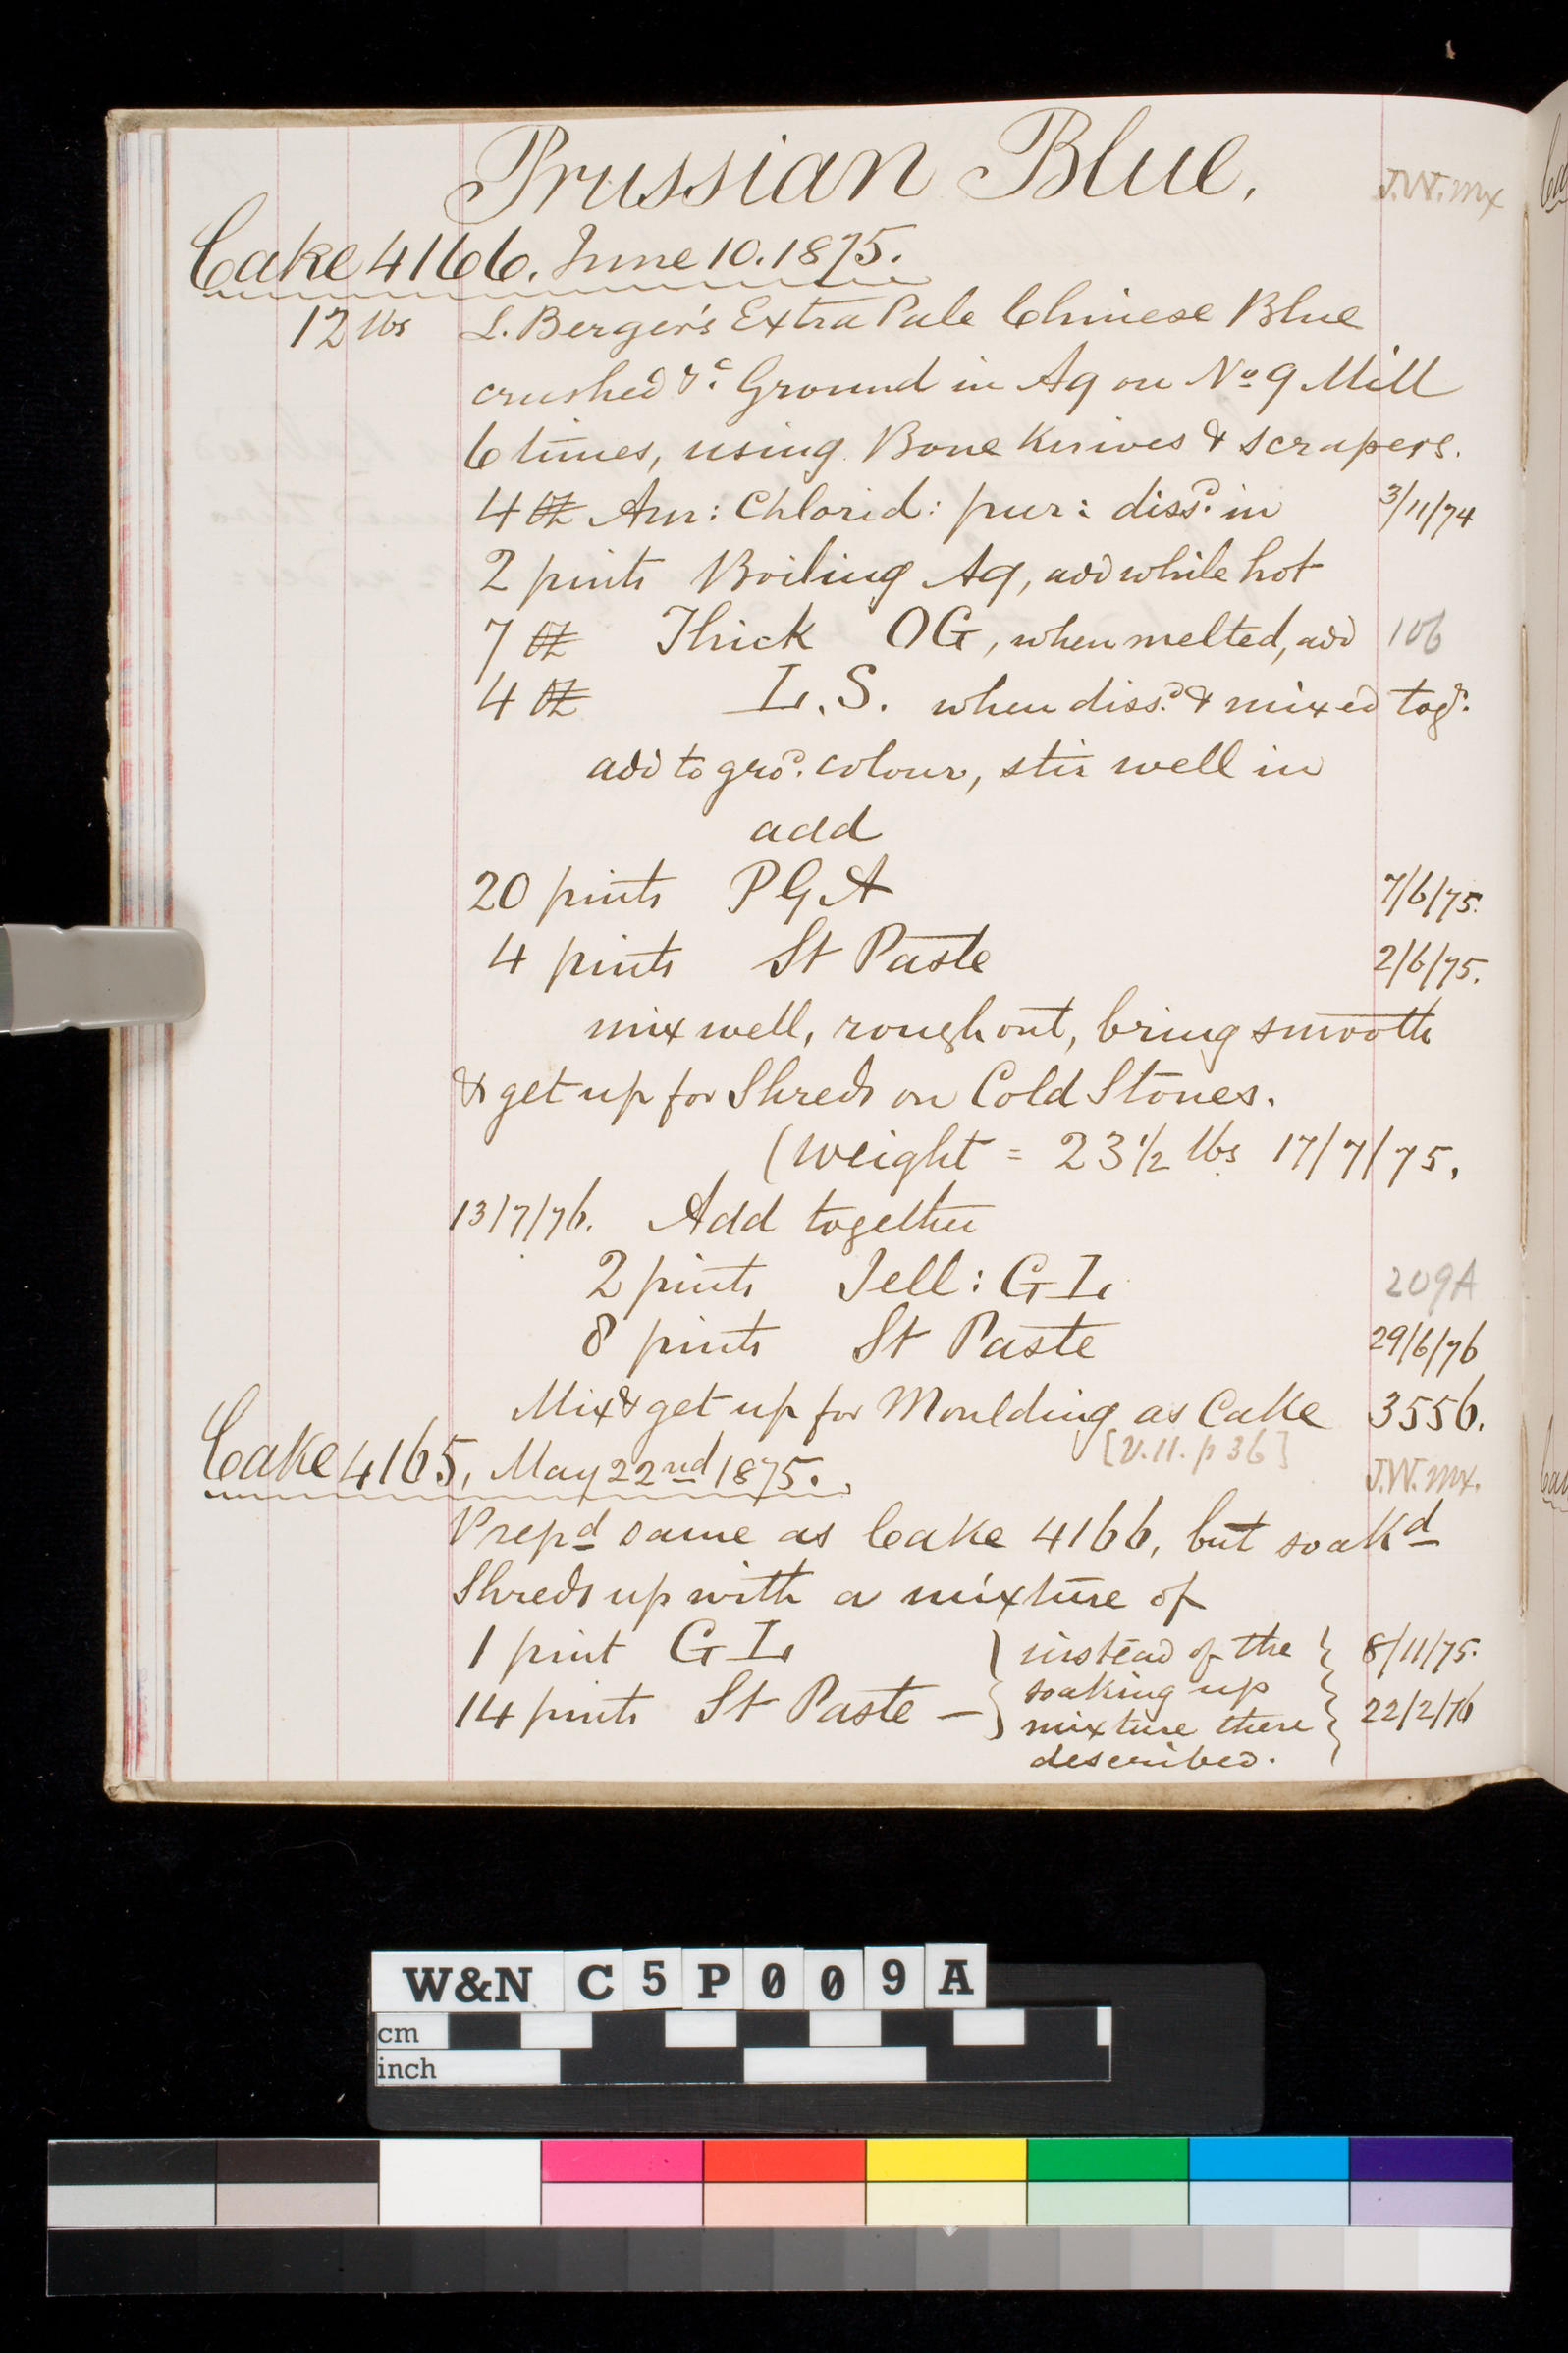 Prussian Blue.
J.W. mx
Cake 4166. June 10. 1875.
12 lbs L. Berger's Extra Pale Chinese Blue
crushed &c. Ground in Aq on No 9 Mill
6 times, using Bone Knives & scrapers.
4 oz Am: Chlorid: pur: dissd. in 3/11/74
2 pints Boiling Aq, add while hot
7 oz Thick OG, when melted, add 106
4 oz L.S. when dissd. & mixed togr.
add to grd. colour, stir well in
add
20 pints PGA 7/6/75.
4 pints St Paste 2/6/75.
mix well, rough out, bring smooth
& get up for Shreds on Cold Stones.
(weight = 23 1/2 lbs 17/7/75.
13/7/76. Add together
2 pints Jell: GL 209A
8 pints St Paste 29/6/76
Mix & get up for Moulding as Cake 3556.
[V.11. p 36]
Cake 4165, May 22nd 1875. J.W. mx.
Prepd same as Cake 4166, but soakd
Shreds up with a mixture of
1 pint GL } instead of the } 8/11/75.
soaking up
14 pints St Paste — mixture there 22/2/76
described.
W&N C5P009A
cm
inch